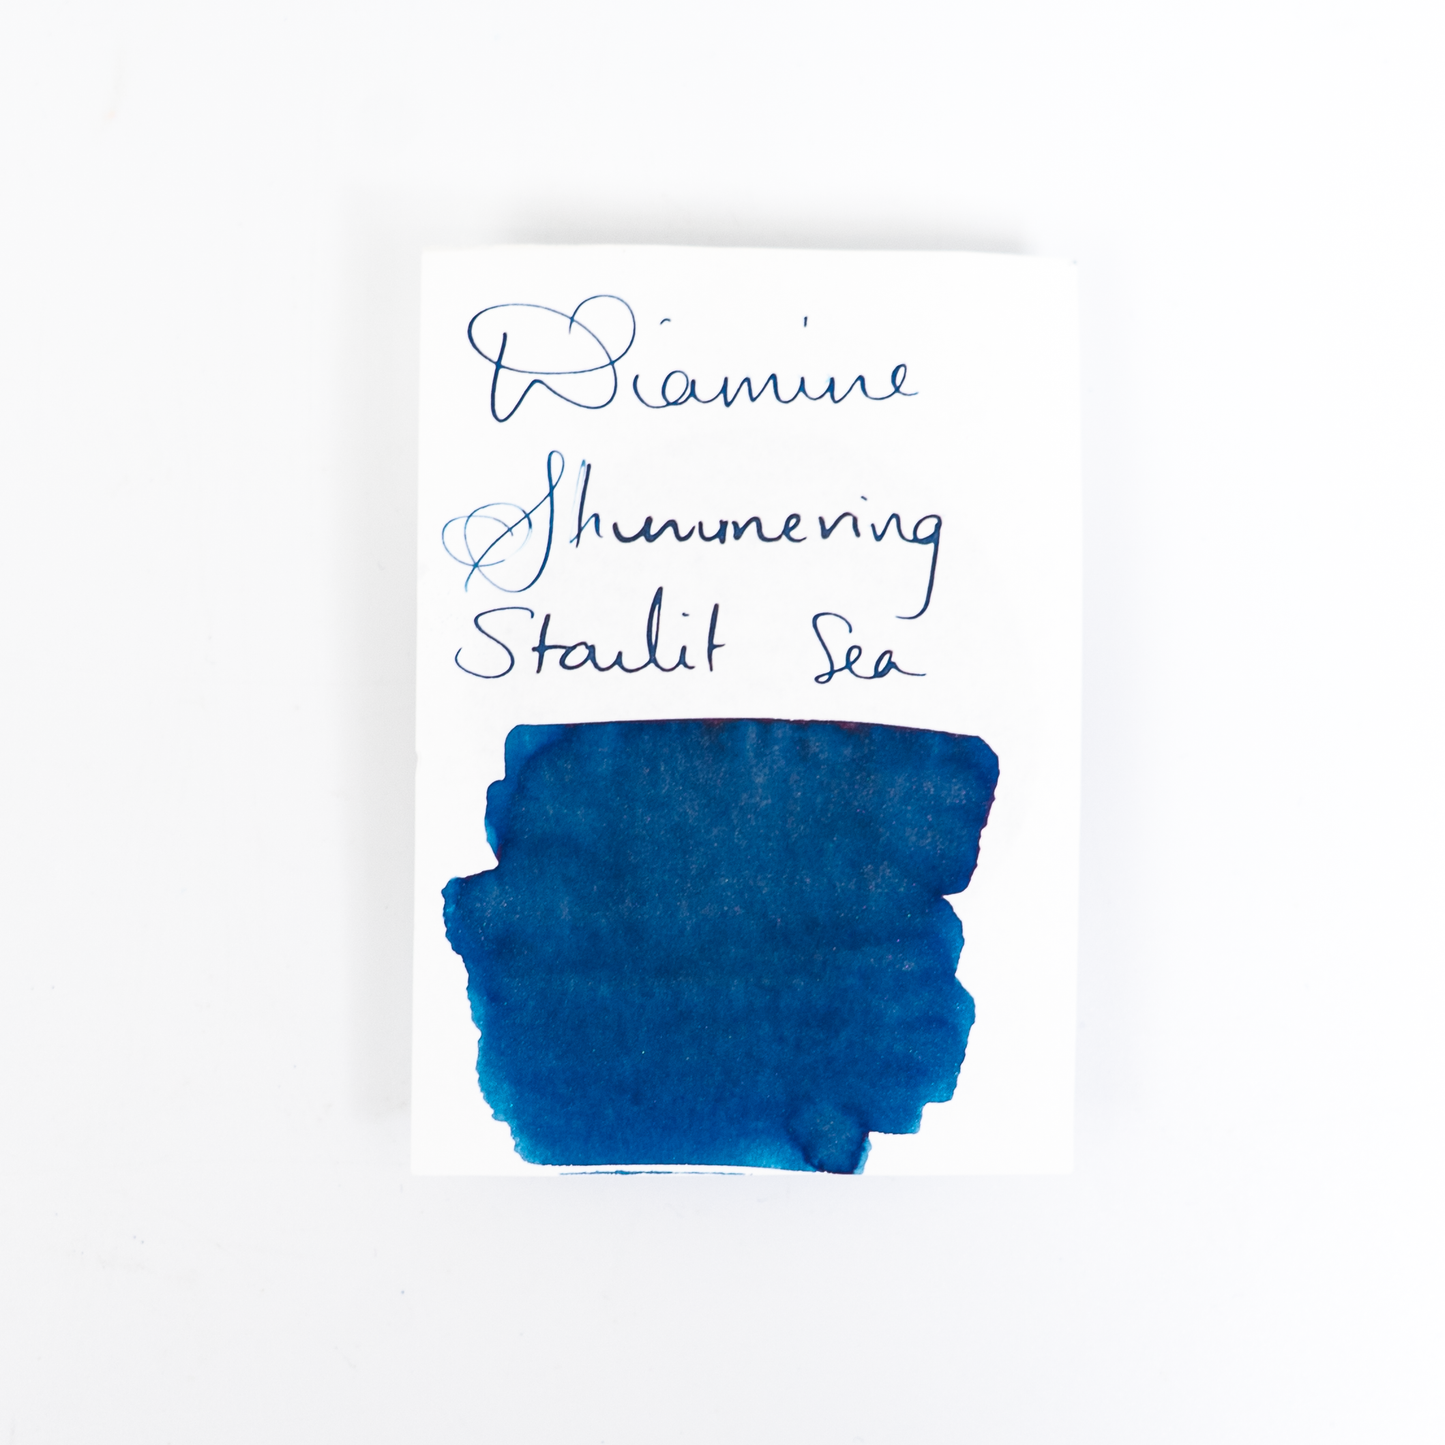 Diamine
Shimmering
Starlit Sea